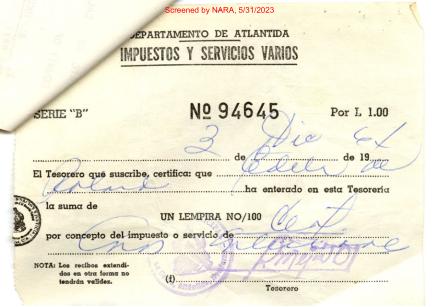 Screened by NARA, 5/31/2023
DEPARTAMENTO DE ATLANTIDA
IMPUESTOS Y SERVICIOS VARIOS
SERIE "B" Nº 94645 Por L 1.00
3 de Dic de 19 64
El Tesorero que suscribe, certifica: que
ha enterado en esta Tesorería
la suma de
UN LEMPIRA NO/100
por concepto del impuesto o servicio de
NOTA: Los recibos extendi-
dos en otra forma no
tendrán validez.
(f)
Tesorero